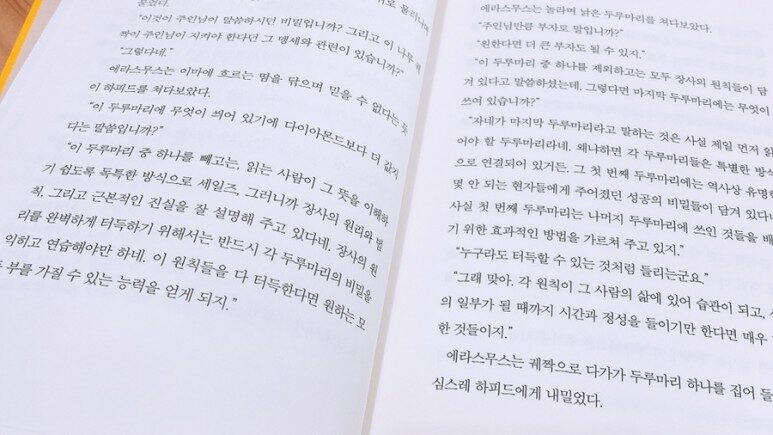 물었다.
"이것이 주인님이 말씀하시던 비밀입니까? 그리고 이 나무
짝이 주인님이 지켜야 한다던 그 맹세와 관련이 있습니까?"
"그렇다네."
에라스무스는 이마에 흐르는 땀을 닦으며 믿을 수 없다는 듯
이 하피드를 쳐다보았다.
"이 두루마리에 무엇이 씌어 있기에 다이아몬드보다 더 값지
다는 말씀입니까?"
"이 두루마리 중 하나를 빼고는, 읽는 사람이 그 뜻을 이해하
기 쉽도록 독특한 방식으로 세일즈, 그러니까 장사의 원리와 법
칙, 그리고 근본적인 진실을 잘 설명해 주고 있다네. 장사의 원
리를 완벽하게 터득하기 위해서는 반드시 각 두루마리의 비밀을
익히고 연습해야만 하네. 이 원칙들을 다 터득한다면 원하는 모
든 부를 가질 수 있는 능력을 얻게 되지."
에라스무스는 놀라며 낡은 두루마리를 쳐다보았다.
"주인님만큼 부자로 말입니까?"
"원한다면 더 큰 부자도 될 수 있지."
"이 두루마리 중 하나를 제외하고는 모두 장사의 원칙들이 담
겨 있다고 말씀하셨는데, 그렇다면 마지막 두루마리에는 무엇이
쓰여 있습니까?"
"자네가 마지막 두루마리라고 말하는 것은 사실 제일 먼저 읽
어야 할 두루마리라네. 왜냐하면 각 두루마리들은 특별한 방식
으로 연결되어 있거든. 그 첫 번째 두루마리에는 역사상 유명
몇 안 되는 현자들에게 주어졌던 성공의 비밀들이 담겨 있다네
사실 첫 번째 두루마리는 나머지 두루마리에 쓰인 것들을 배
기 위한 효과적인 방법을 가르쳐 주고 있지."
"누구라도 터득할 수 있는 것처럼 들리는군요."
"그래 맞아. 각 원칙이 그 사람의 삶에 있어 습관이 되고,
의 일부가 될 때까지 시간과 정성을 들이기만 한다면 매우
한 것들이지."
에라스무스는 궤짝으로 다가가 두루마리 하나를 집어 들
심스레 하피드에게 내밀었다.